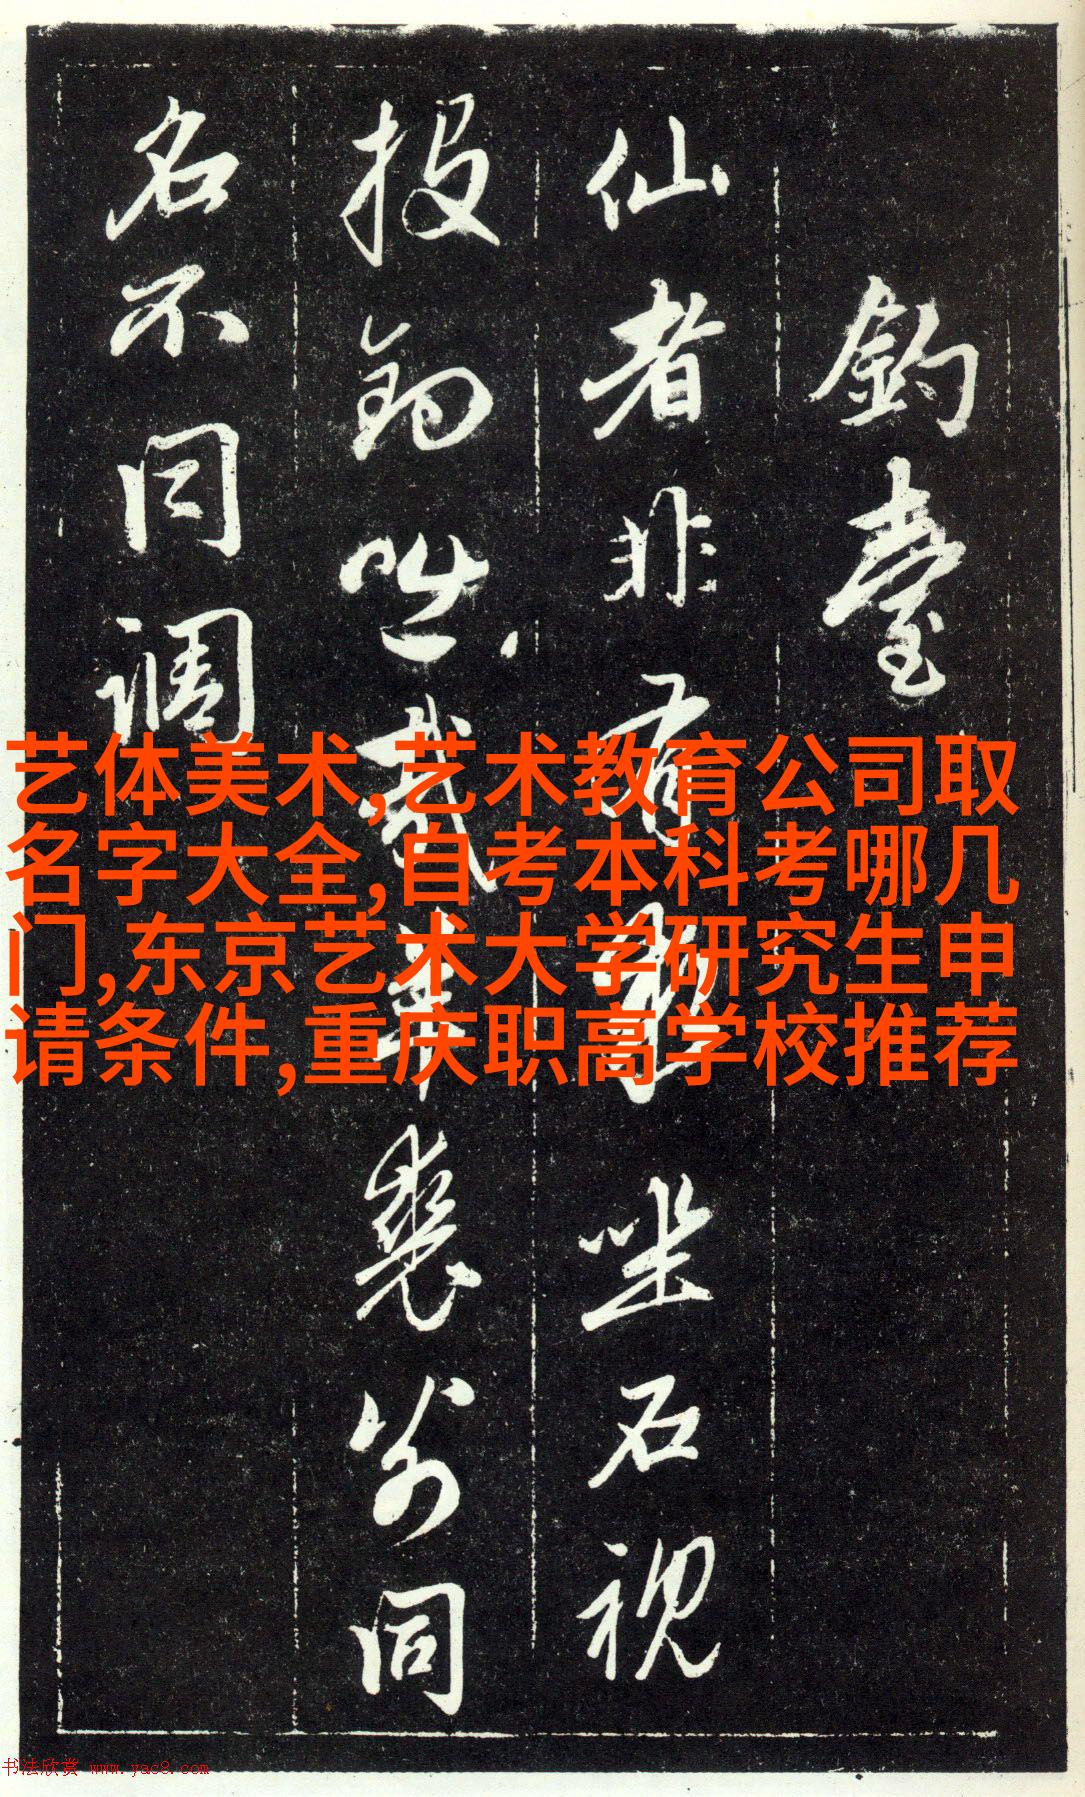 釣臺
仙者非有坐石視
投釣咄哉羊裘同
名不同調
艺体美术,艺术教育公司取
名字大全,自考本科考哪几
门,东京艺术大学研究生申
请条件,重庆职高学校推荐
书法欣赏 www.yac8.com